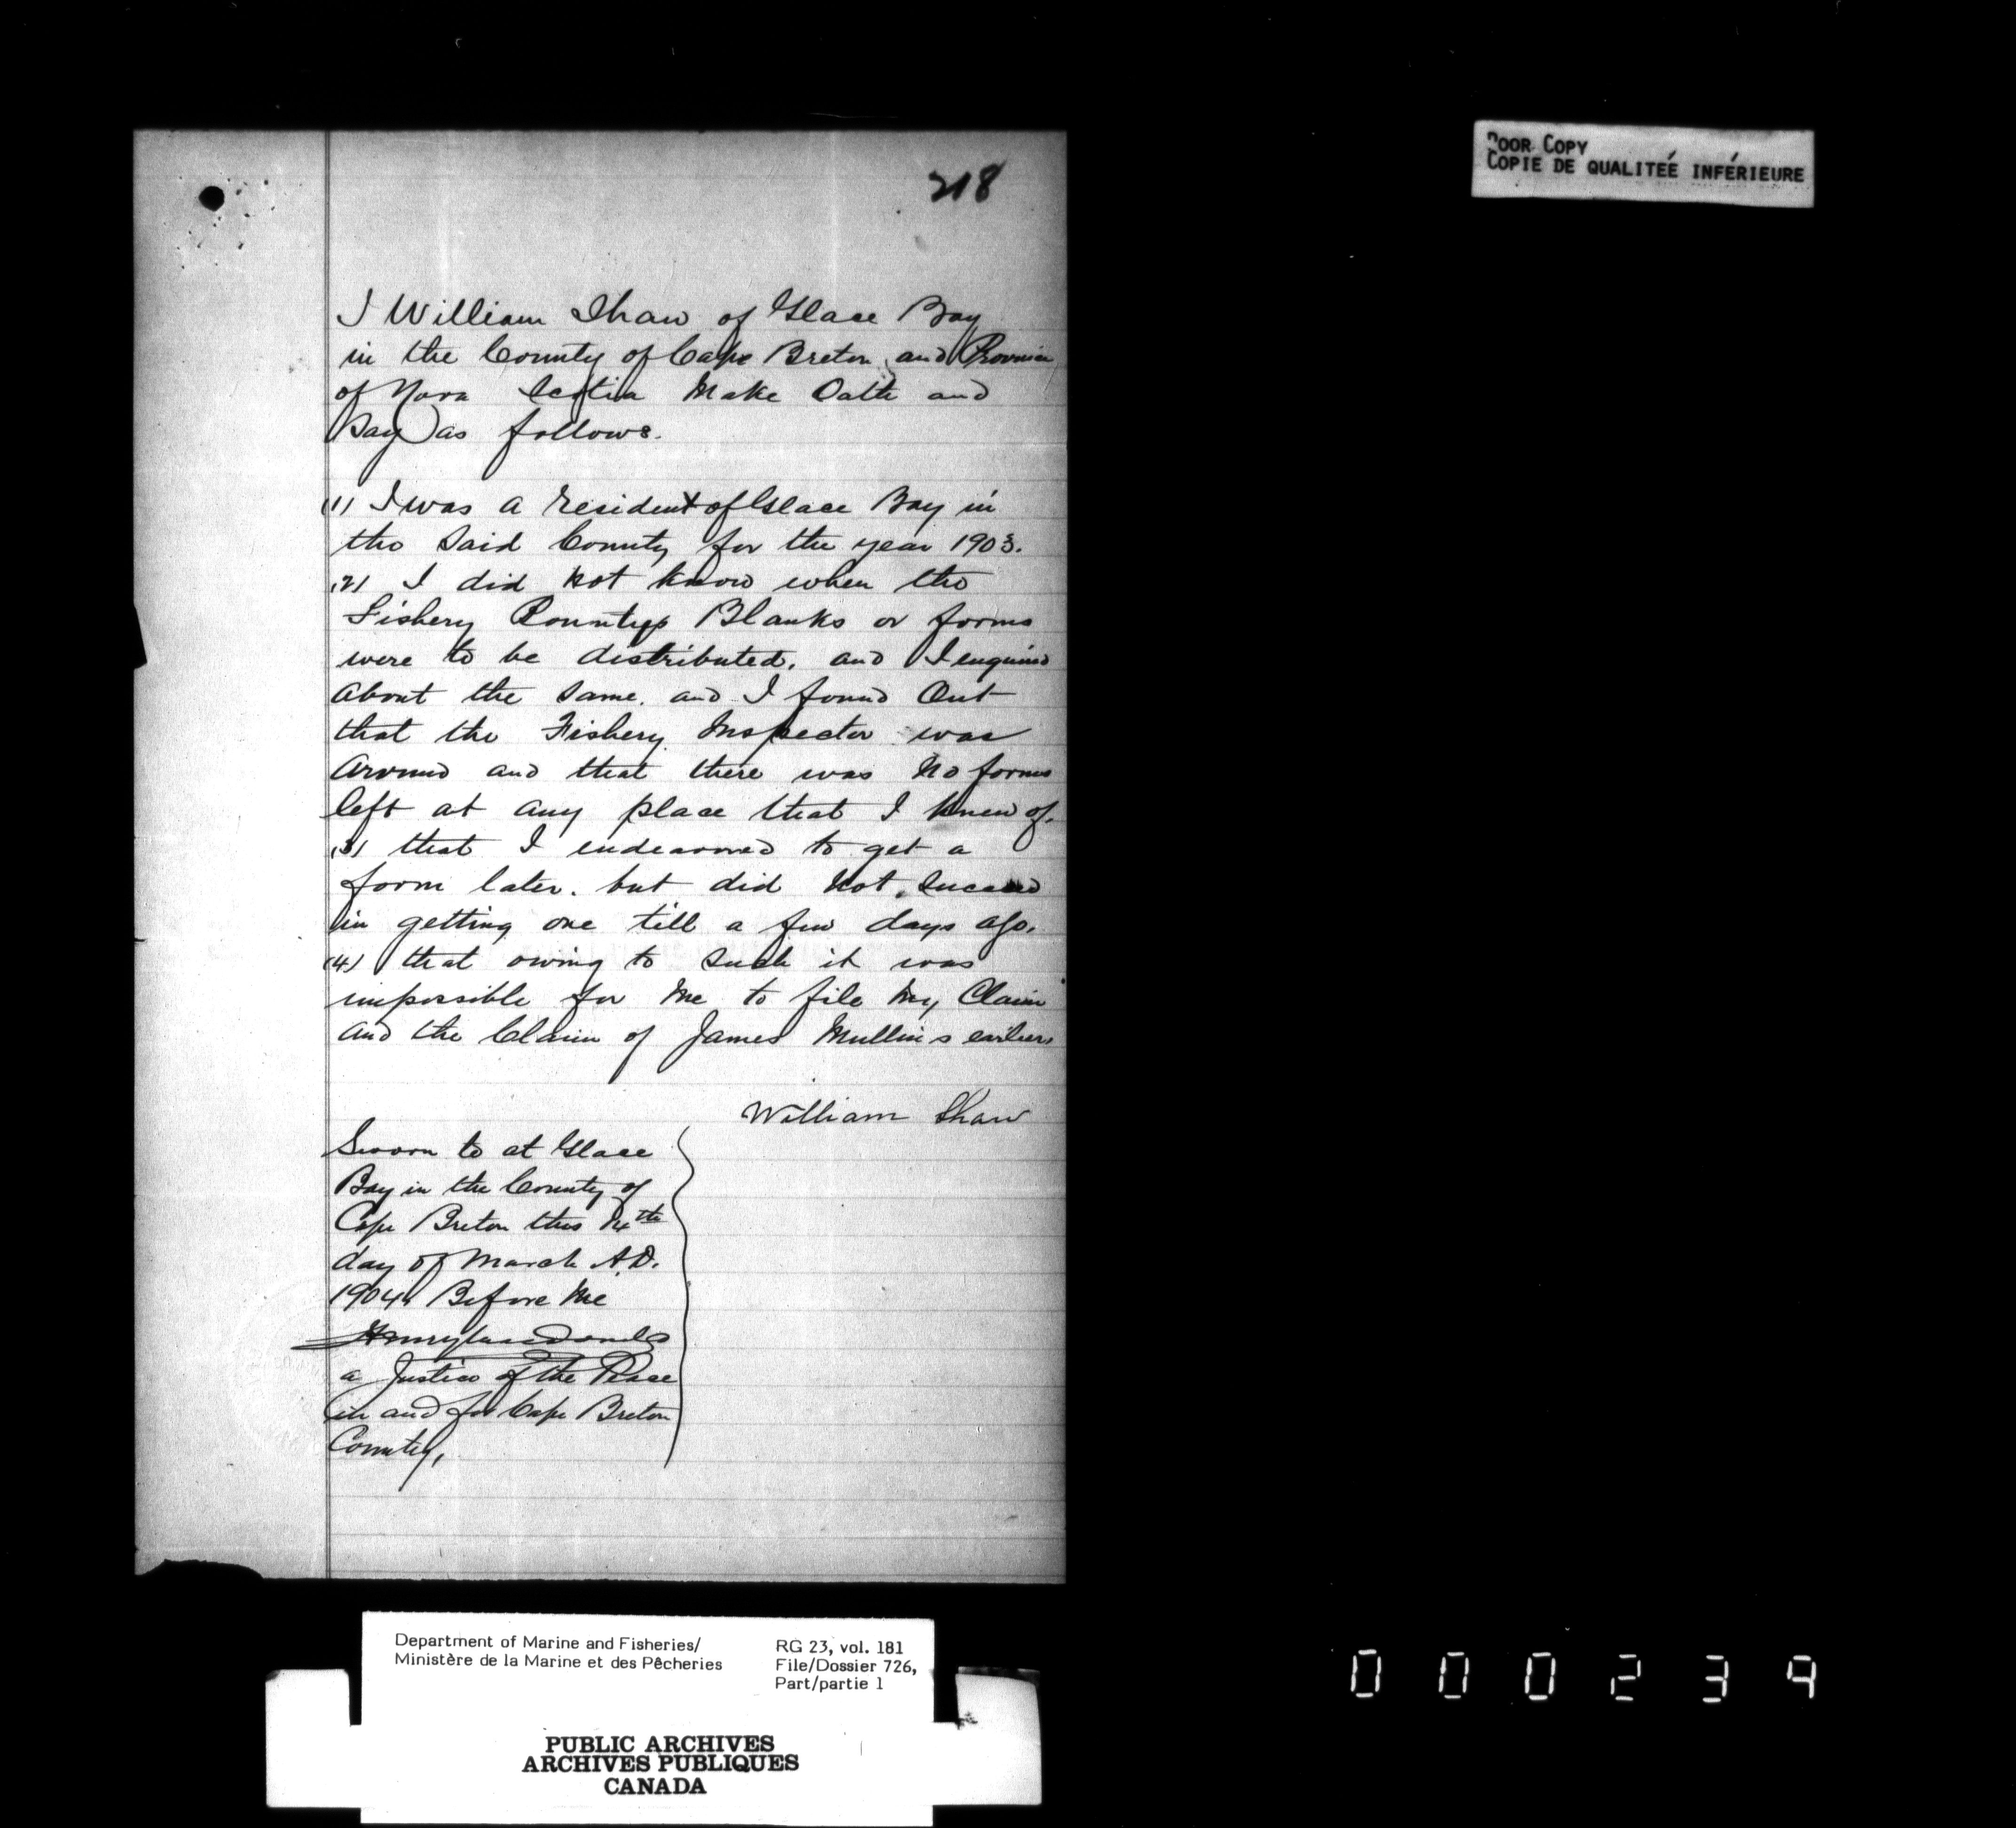 218
POOR COPY
COPIE DE QUALITEÉ INFÉRIEURE
I William Shaw of Glace Bay
in the County of Cape Breton and Province
of Nova Scotia Make Oath and
Say as follows.
(1) I was a resident of Glace Bay in
the Said County for the year 1903.
(2) I did not know when the
Fishery Bountys Blanks or forms
were to be distributed. and I enquired
about the same. and I found Out
that the Fishery Inspector was
Around and that there was no forms
left at any place that I knew of.
(3) that I endeavored to get a
form later. but did not succeed
in getting one till a few days ago.
(4) that owing to such it was
impossible for me to file my Claim
and the Claim of James Mullins earlier
William Shaw
Sworn to at Glace
Bay in the County of
Cape Breton this
day of March A.D.
1904 Before Me
a Justice of the Peace
in and for Cape Breton
County,
Department of Marine and Fisheries/
Ministère de la Marine et des Pêcheries
RG 23, vol. 181
File/Dossier 726,
Part/partie 1
PUBLIC ARCHIVES
ARCHIVES PUBLIQUES
CANADA
000239